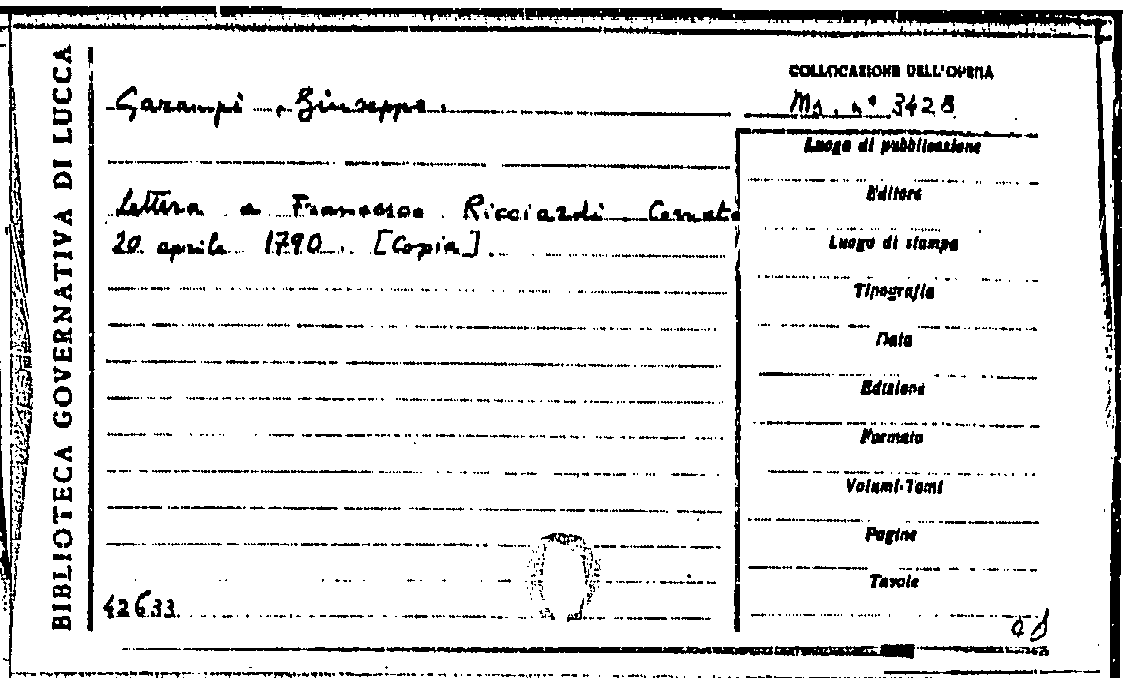 BIBLIOTECA GOVERNATIVA DI LUCCA
COLLOCAZIONE DELL'OPERA
Garampi, Giuseppe.
Ms. n° 3428
Luogo di pubblicazione
Lettera a Francesco Ricciardi
Editore
20 aprile 1790. [Copia].
Luogo di stampa
Tipografia
Data
Edizione
Formato
Volumi-Tomi
Pagine
Tavole
42633